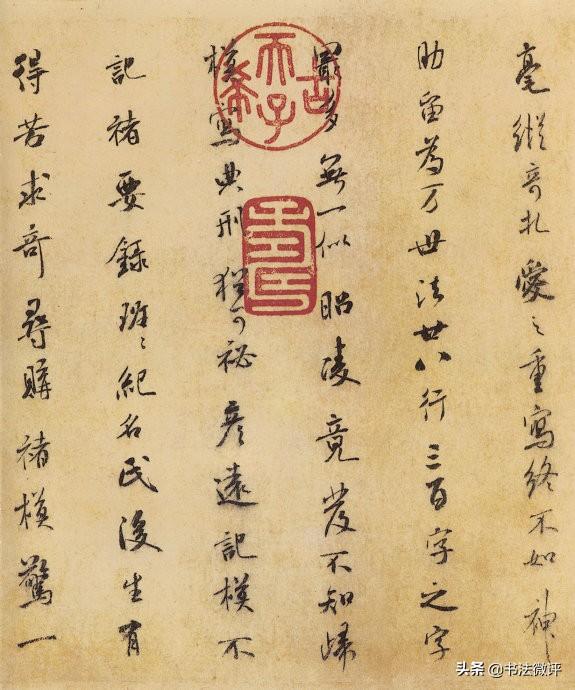 毫縱奇札愛之重寫終不如神
助留為万世法廿八行三百字之字
最多無一似昭陵竟發不知歸
模寫典刑猶可祕彦遠記模不
記褚要録班〻紀名氏後生有
得苦求奇尋購褚模驚一
古希天子
壽
头条 @书法微评